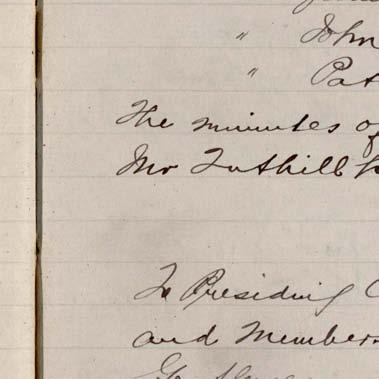 " John
" Pat
The minutes of
Mr Tuthill
To Presiding
and Members